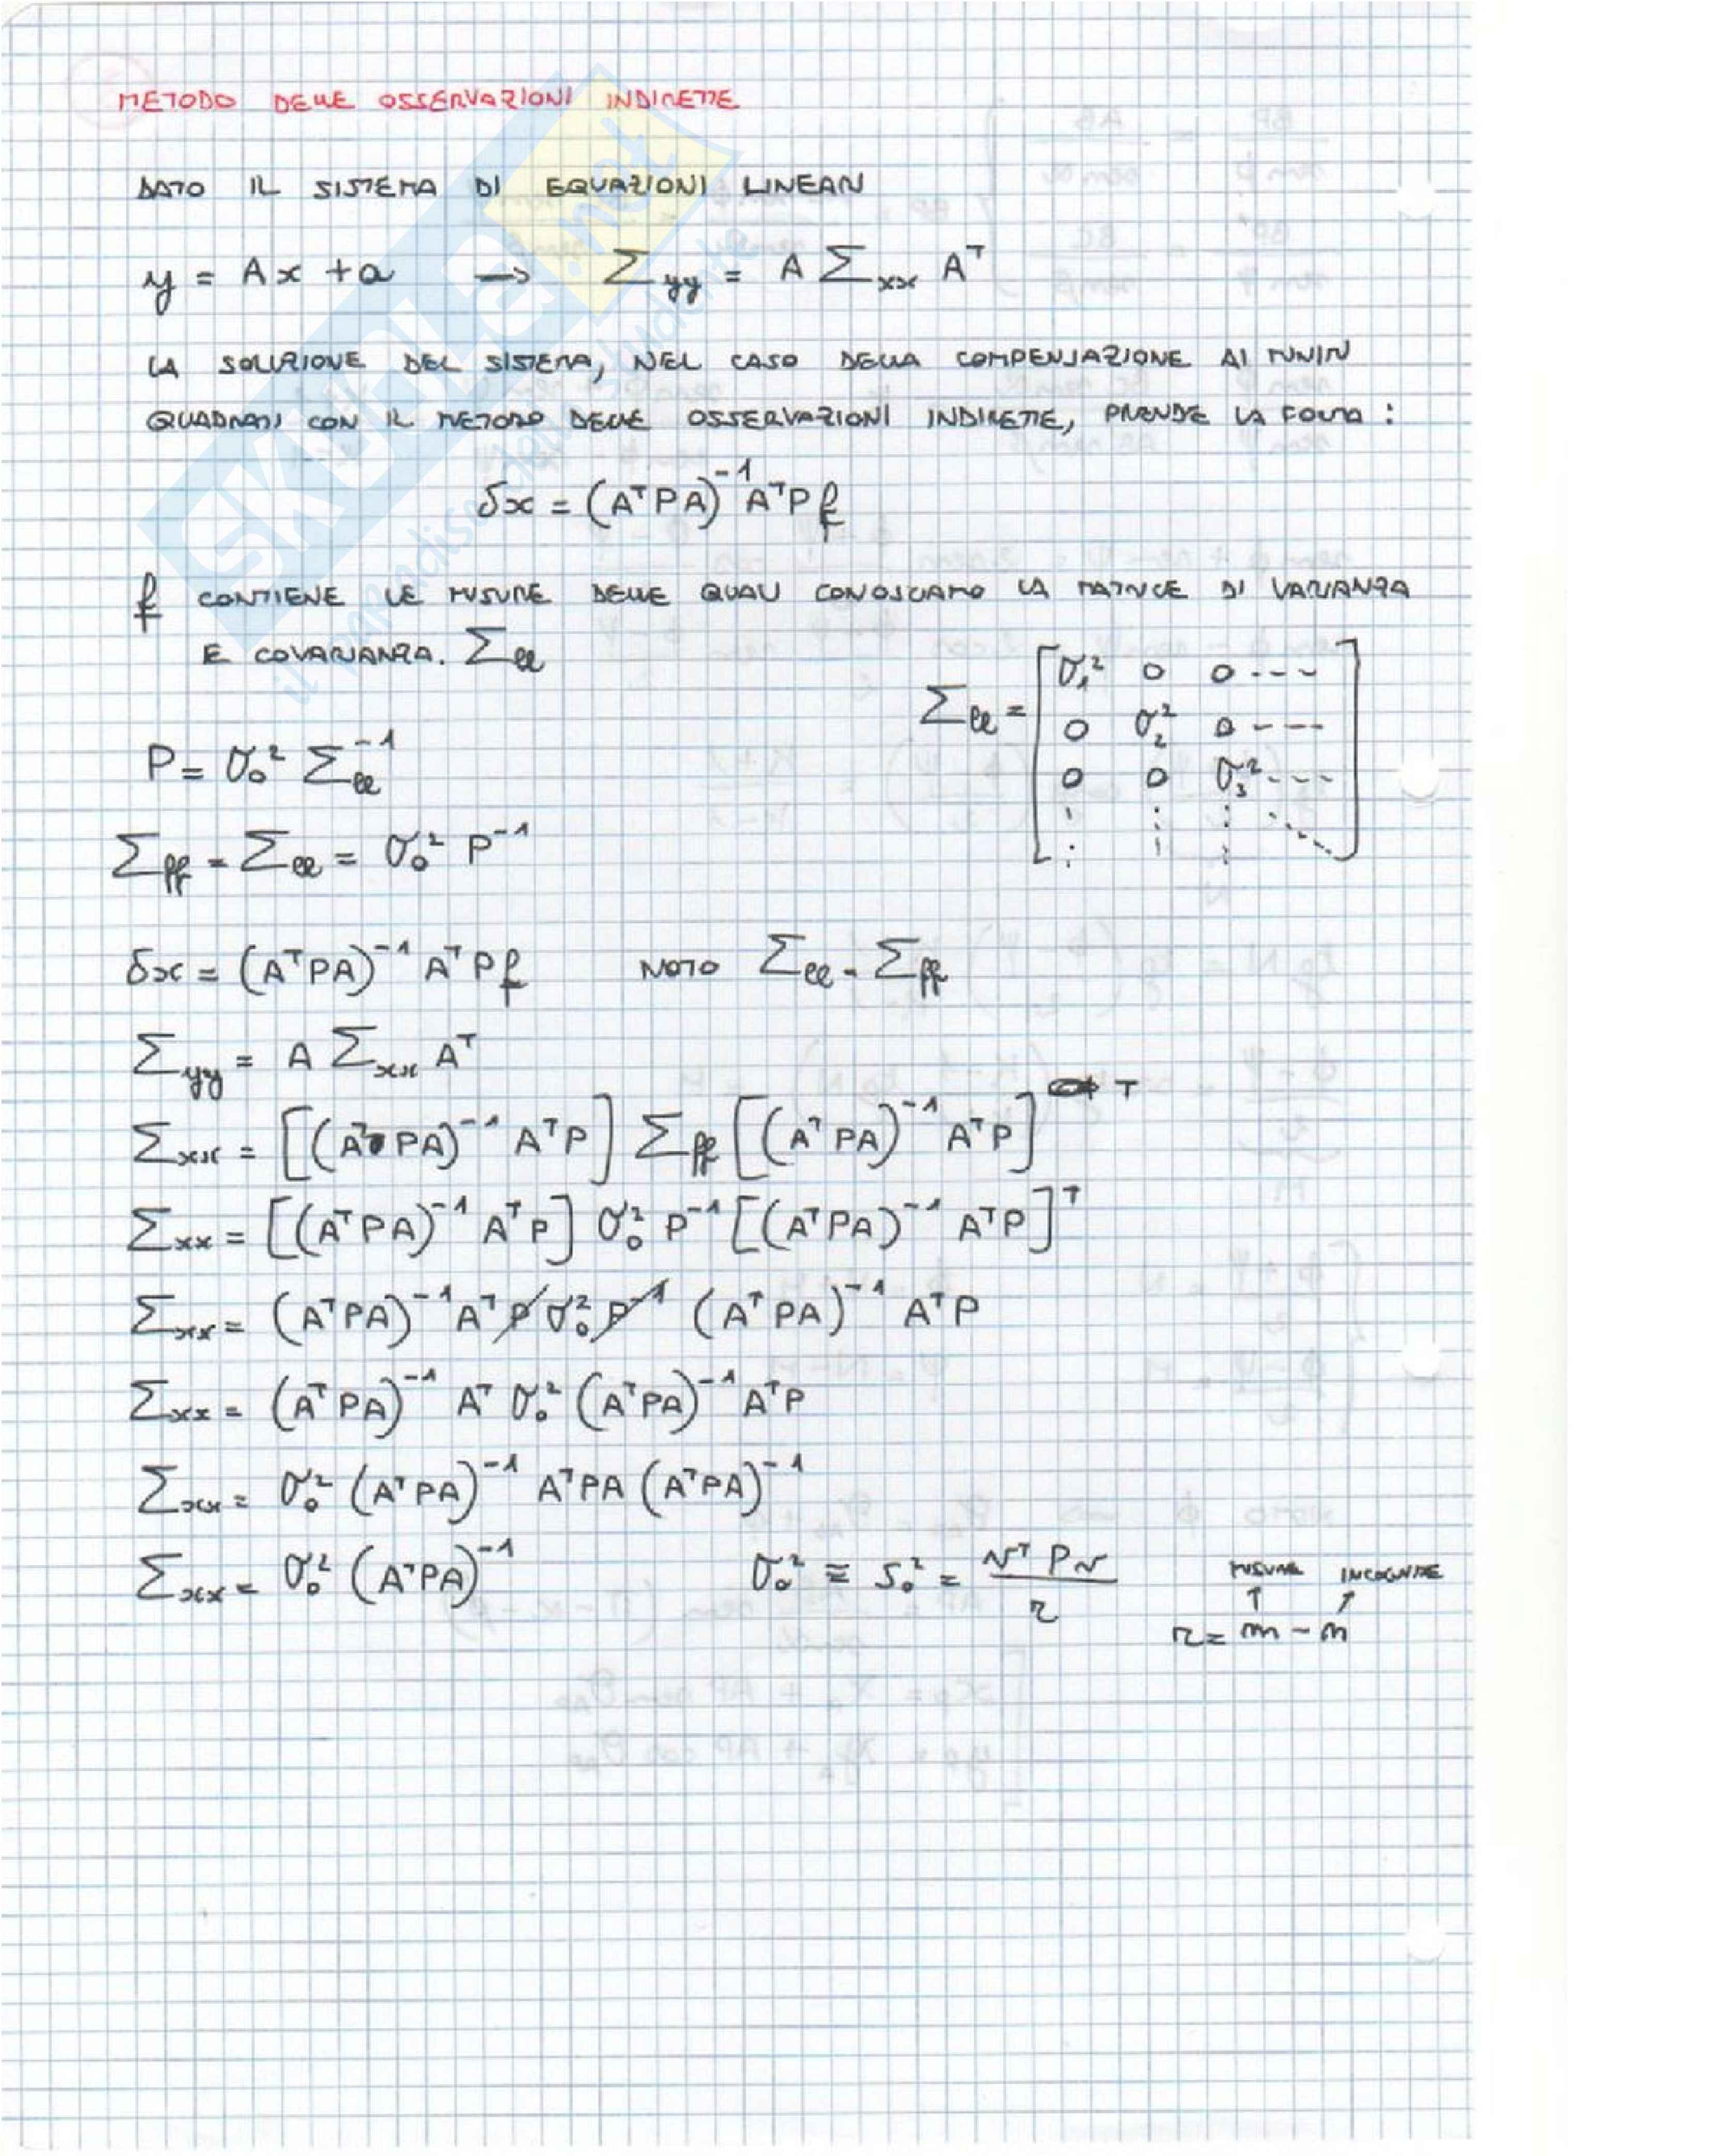 METODO DELLE OSSERVAZIONI INDIRETTE
DATO IL SISTEMA DI EQUAZIONI LINEARI
y = Ax + a → Σyy = A Σxx Aᵀ
LA SOLUZIONE DEL SISTEMA, NEL CASO DELLA COMPENSAZIONE AI MINIMI
QUADRATI CON IL METODO DELLE OSSERVAZIONI INDIRETTE, PRENDE LA FORMA :
δx = (AᵀPA)⁻¹AᵀPf
f CONTIENE LE MISURE DELLE QUALI CONOSCIAMO LA MATRICE DI VARIANZA
E COVARIANZA. Σℓℓ
Σℓℓ = [σ₁² 0 0 ---
0 σ₂² 0 ---
0 0 σ₃² ---
⋮ ⋮ ⋮ ⋱]
P = σ₀² Σℓℓ⁻¹
Σff = Σℓℓ = σ₀² P⁻¹
δx = (AᵀPA)⁻¹ AᵀPf NOTO Σℓℓ = Σff
Σyy = A Σxx Aᵀ
Σxx = [(AᵀPA)⁻¹ AᵀP] Σff [(AᵀPA)⁻¹ AᵀP]ᵀ
Σxx = [(AᵀPA)⁻¹ AᵀP] σ₀² P⁻¹ [(AᵀPA)⁻¹ AᵀP]ᵀ
Σxx = (AᵀPA)⁻¹ Aᵀ P σ₀² P⁻¹ (AᵀPA)⁻¹ AᵀP
Σxx = (AᵀPA)⁻¹ Aᵀ σ₀² (AᵀPA)⁻¹ AᵀP
Σxx = σ₀² (AᵀPA)⁻¹ AᵀPA (AᵀPA)⁻¹
Σxx = σ₀² (AᵀPA)⁻¹ σ₀² ≡ s₀² = vᵀPv / r
MISURE INCOGNITE
↑ ↗
r = m - n
SKUOLA.net
il paradiso dello studente